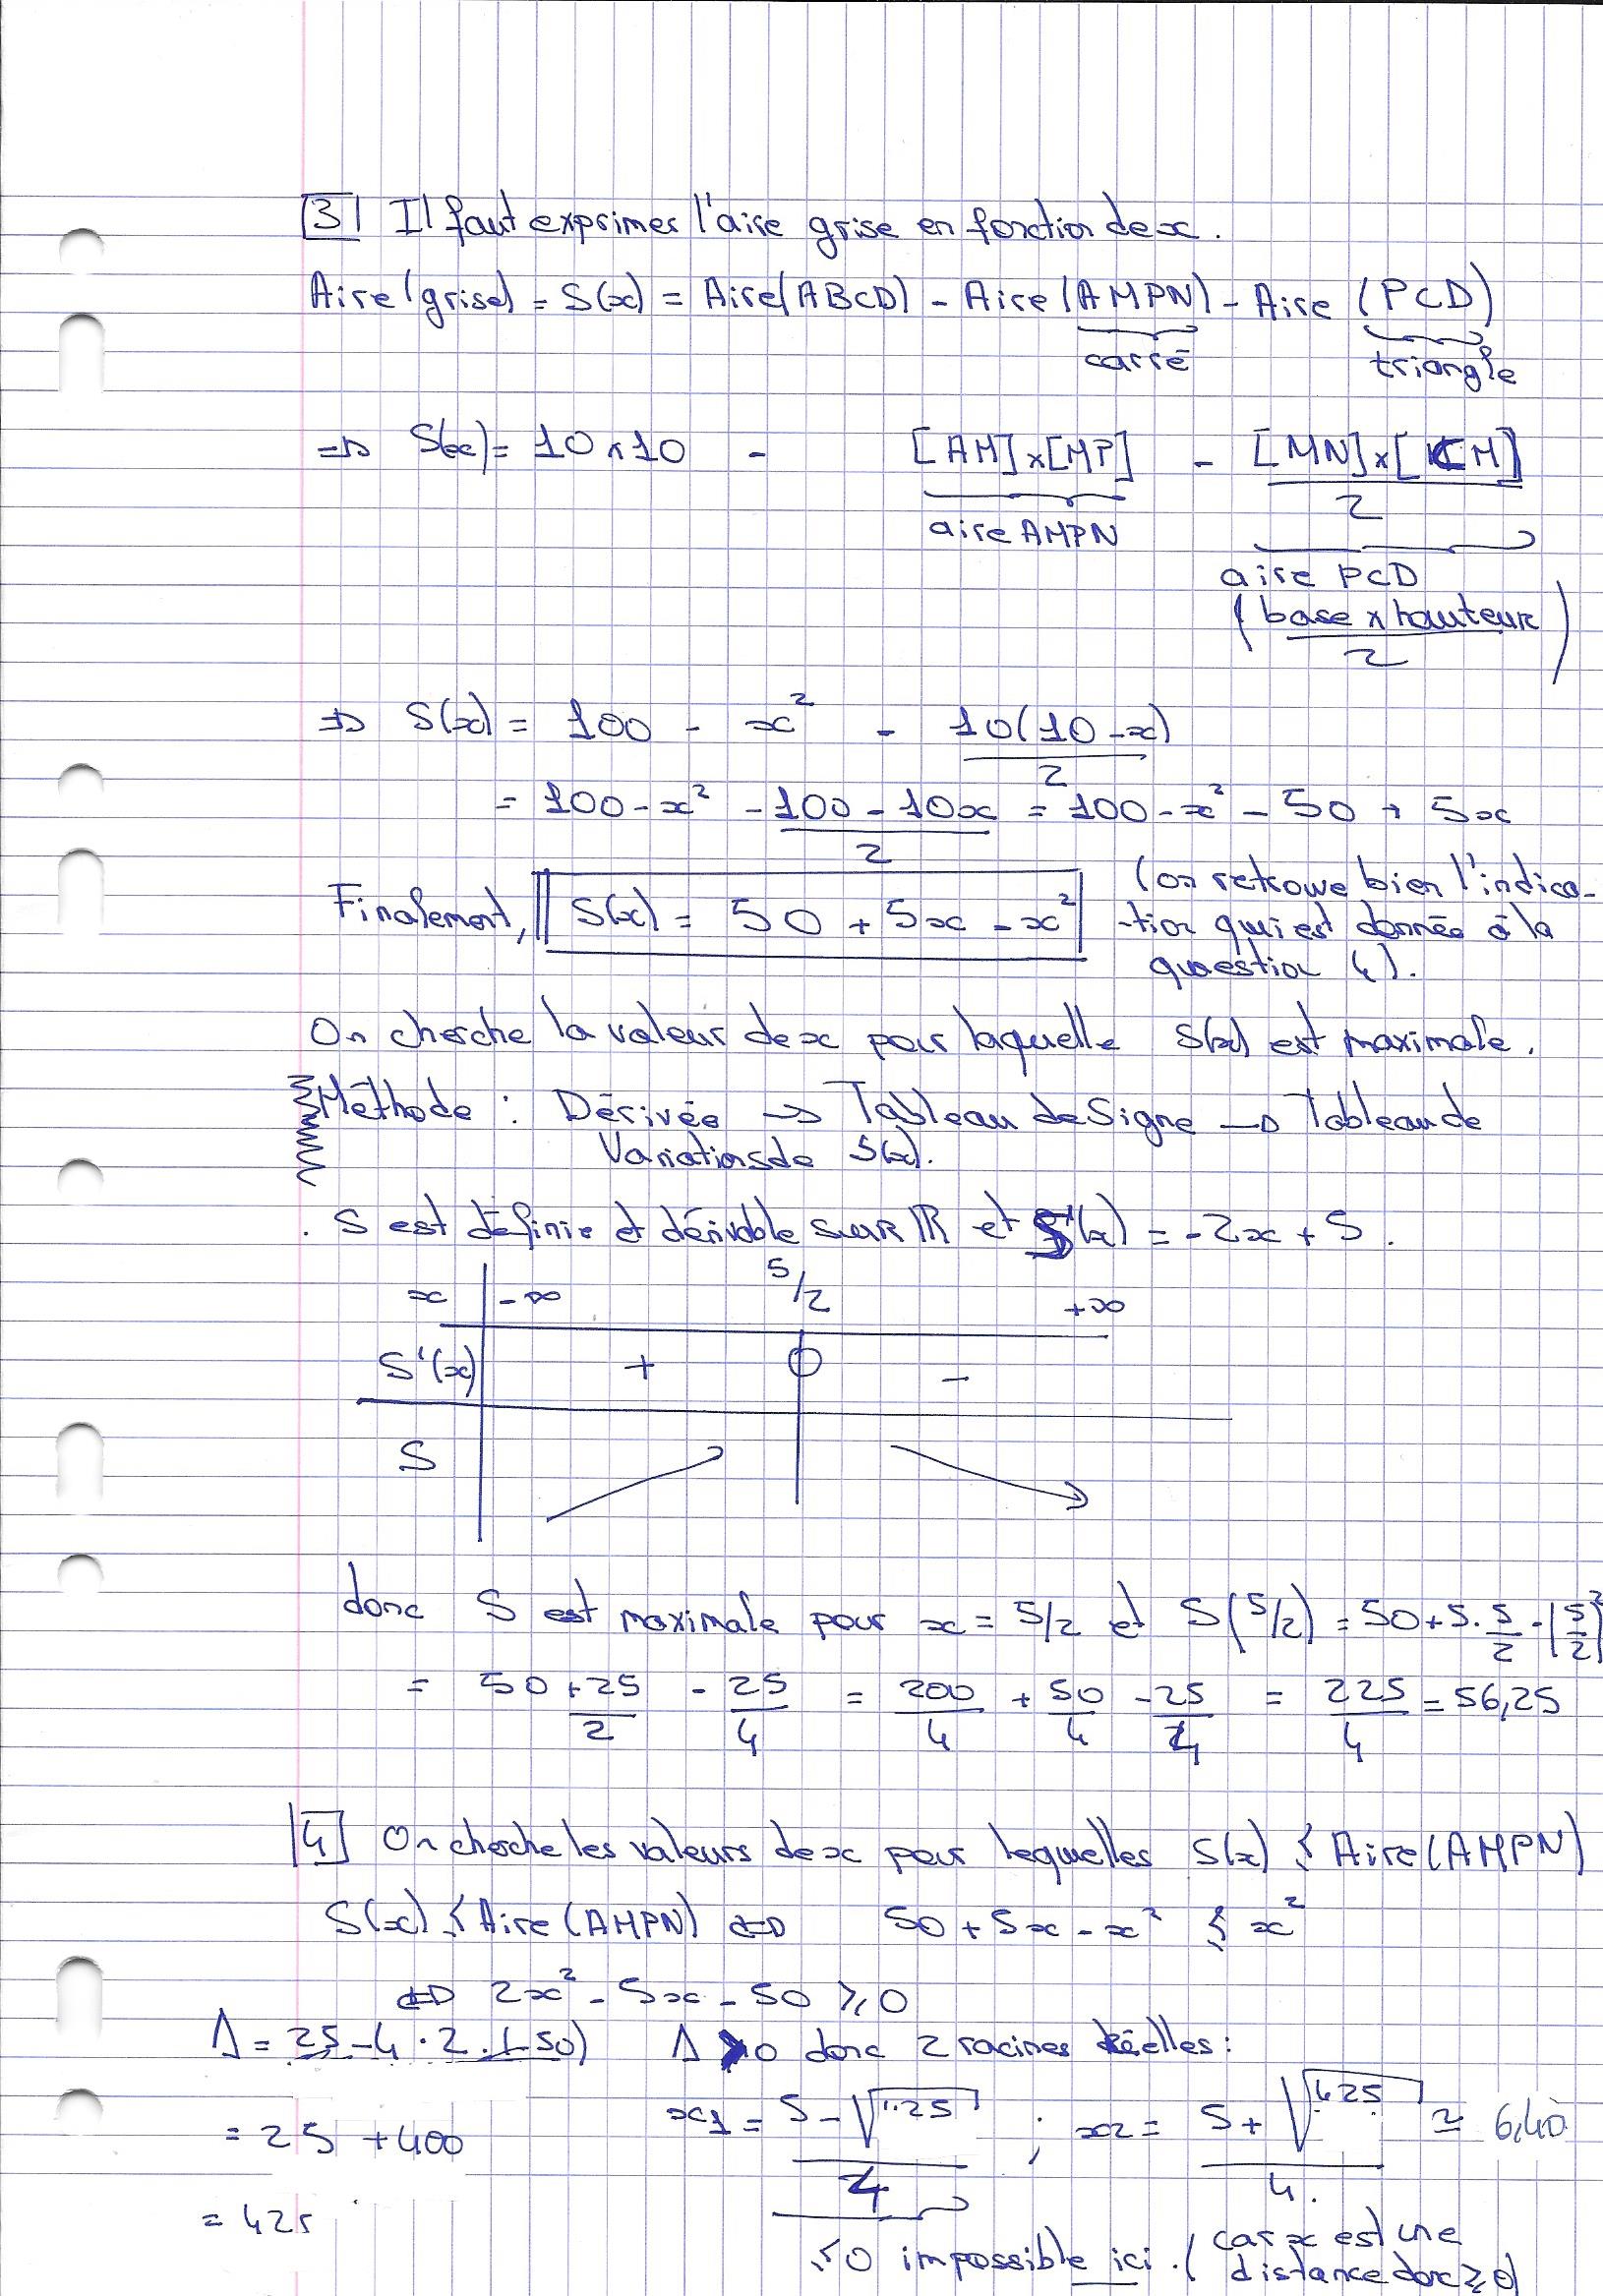 [3] Il faut exprimer l'aire grise en fonction de x.
Aire(grise) = S(x) = Aire(ABCD) - Aire(AMPN) - Aire (PCD)
carré triangle
=> S(x) = 10 x 10 - [AM]x[MP] - [MN]x[CM]/2
aire AMPN
aire PCD
(base x hauteur / 2)
=> S(x) = 100 - x² - 10(10-x)/2
= 100 - x² - 100 - 10x/2 = 100 - x² - 50 + 5x
Finalement, S(x) = 50 + 5x - x² (on retrouve bien l'indica-
-tion qui est donnée à la
question 4).
On cherche la valeur de x pour laquelle S(x) est maximale.
Méthode : Dérivée -> Tableau de Signe -> Tableau de
Variations de S(x).
. S est définie et dérivable sur IR et S'(x) = -2x + 5.
x -∞ 5/2 +∞
S'(x) + 0 -
S
donc S est maximale pour x = 5/2 et S(5/2) = 50 + 5.5/2 - (5/2)²
= 50 + 25/2 - 25/4 = 200/4 + 50/4 - 25/4 = 225/4 = 56,25
[4] On cherche les valeurs de x pour lequelles S(x) ≤ Aire(AMPN)
S(x) ≤ Aire(AMPN) <=> 50 + 5x - x² ≤ x²
<=> 2x² - 5x - 50 ≥ 0
Δ = 25 - 4 . 2 . (-50) Δ > 0 donc 2 racines réelles :
= 25 + 400 x1 = 5 - √425 / 4 ; x2 = 5 + √425 / 4. ≃ 6,40
= 425
≤ 0 impossible ici. (car x est une
distance donc ≥ 0)